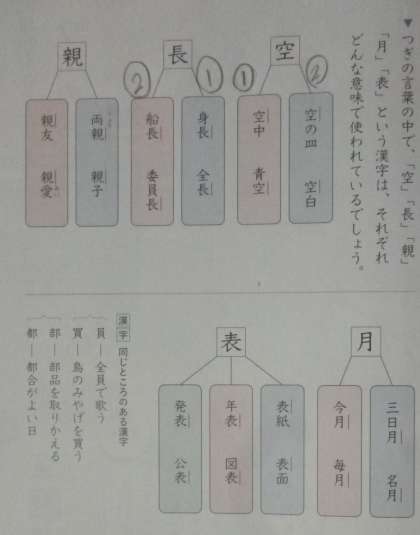 ▼つぎの言葉の中で、「空」「長」「親」
「月」「表」という漢字は、それぞれ
どんな意味で使われているでしょう。
空
②
空の皿 空白
①
空中 青空
長
①
身長 全長
②
船長 委員長
親
両親 親子
親友 親愛
月
三日月 名月
今月 毎月
表
表紙 表面
年表 図表
発表 公表
漢字 同じところのある漢字
員―全員で歌う
買―島のみやげを買う
部―部品を取りかえる
都―都合がよい日